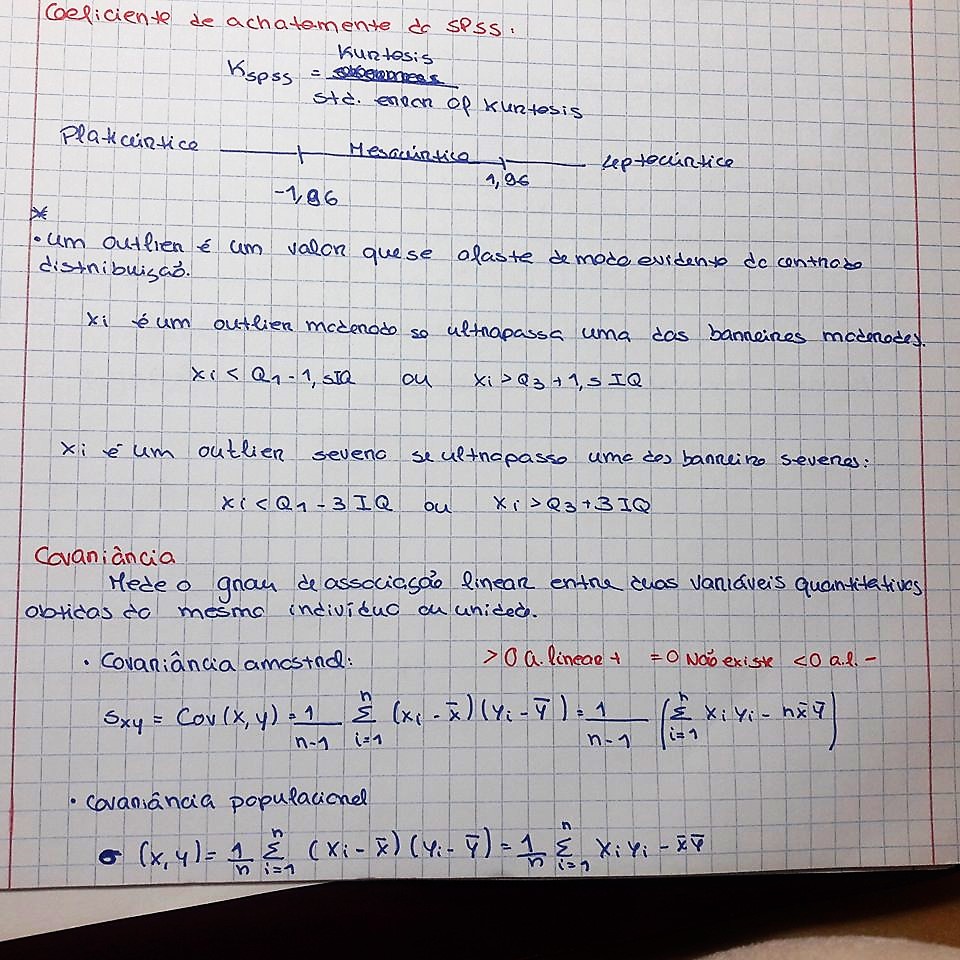 Coeficiente de achatamento do SPSS:
K_SPSS = Kurtosis / Std. error of Kurtosis
Platicúrtica Mesocúrtica Leptocúrtica
-1,96 1,96
*
• Um outlier é um valor que se afasta de modo evidente do centro da
distribuição.
xi é um outlier moderado se ultrapassa uma das barreiras moderadas.
xi < Q1 - 1,5IQ ou xi > Q3 + 1,5 IQ
xi é um outlier severo se ultrapassa uma das barreira severas:
xi < Q1 - 3 IQ ou xi > Q3 + 3 IQ
Covariância
Mede o grau de associação linear entre duas variáveis quantitativas
obtidas do mesmo indivíduo ou unidade.
• Covariância amostral: >0 a. linear + =0 Não existe <0 a.l. -
Sxy = Cov(x,y) = 1/(n-1) Σ_{i=1}^{n} (xi - x̄)(yi - ȳ) = 1/(n-1) (Σ_{i=1}^{n} xi yi - n x̄ ȳ)
• Covariância populacional
σ (x,y) = 1/n Σ_{i=1}^{n} (xi - x̄)(yi - ȳ) = 1/n Σ_{i=1}^{n} xi yi - x̄ ȳ